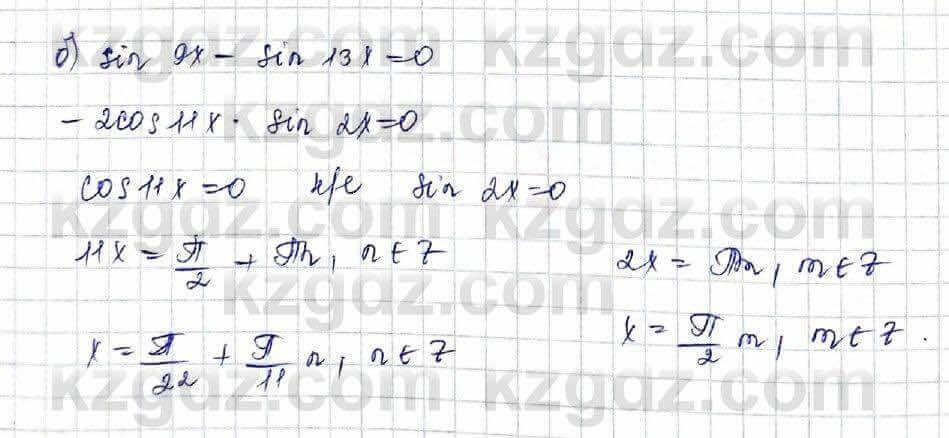 б) sin 9x - sin 13x = 0
- 2cos 11x · sin 2x = 0
cos 11x = 0 н/е sin 2x = 0
11x = π/2 + πn, n ∈ Z
2x = πm, m ∈ Z
x = π/22 + π/11 n, n ∈ Z
x = π/2 m, m ∈ Z.
kzgdz.com
kzgdz.com
kzgdz.com
kzgdz.com
kzgdz.com
kzgdz.com
kzgdz.com